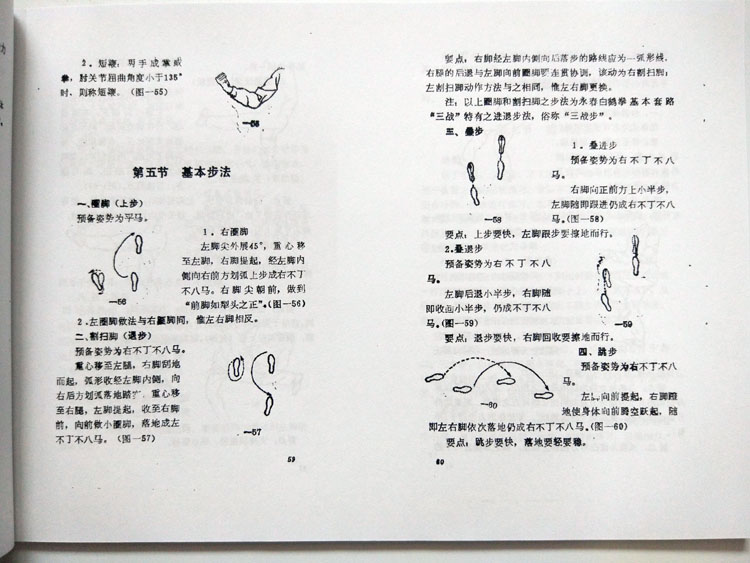 2．短鞭：两手成掌或
拳，肘关节屈曲角度小于135°
时，则称短鞭。（图—55）
—55
第五节 基本步法
一、圈脚（上步）
预备姿势为平马。
1．右圈脚
左脚尖外展45°，重心移
至左脚，右脚提起，经左脚内
侧向右前方划弧上步成右不丁
不八马。右脚尖朝前，做到
“前脚如犁头之正”。（图—56）
—56
2．左圈脚做法与右圈脚同，惟左右脚相反。
二、割扫脚（退步）
预备姿势为右不丁不八马。
重心移至左腿，右脚刮地
而起，弧形收经左脚内侧，向
右后方划弧落地踏实，重心移
至右腿，左脚提起，收至右脚
前，向前做小圈脚，落地成左
不丁不八马。（图—57）
—57
59
要点：右脚经左脚内侧向后落步的路线应为一弧形线，
右腿的后退与左脚向前圈脚要连贯协调，该动为右割扫脚；
左割扫脚动作方法与之相同，惟左右脚更换。
注：以上圈脚和割扫脚之步法为永春白鹤拳基本套路
“三战”特有之进退步法，俗称“三战步”。
三、叠步
1．叠进步
预备姿势为右不丁不八
马。
右脚向正前方上小半步，
左脚随即跟进仍成右不丁不八
马。（图—58）
—58
要点：上步要快，左脚跟步要擦地而行。
2.叠退步
预备姿势为右不丁不八
马。
左脚后退小半步，右脚随
即收回小半步，仍成不丁不八
马。（图—59）
—59
要点：退步要快，右脚回收要擦地而行。
四、跳步
预备姿势为右不丁不八
马。
左脚向前提起，右脚蹬
地使身体向前腾空跃起，随
即左右脚依次落地仍成右不丁不八马。（图—60）
—60
要点：跳步要快，落地要轻要稳。
60